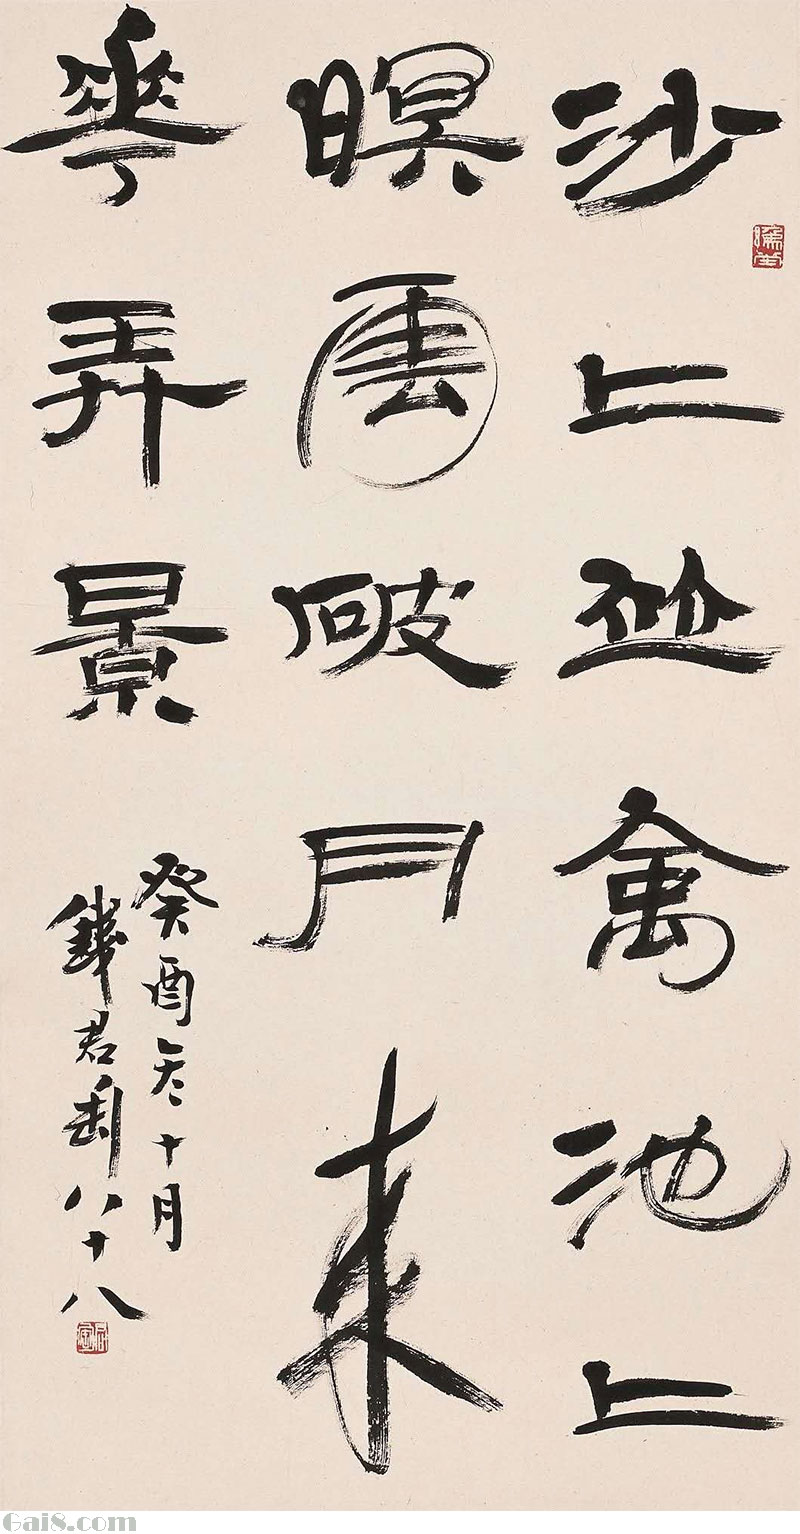 沙上並禽池上
暝雲破月來
華弄景
癸酉十月
錢君匋八十八
Gai8.com